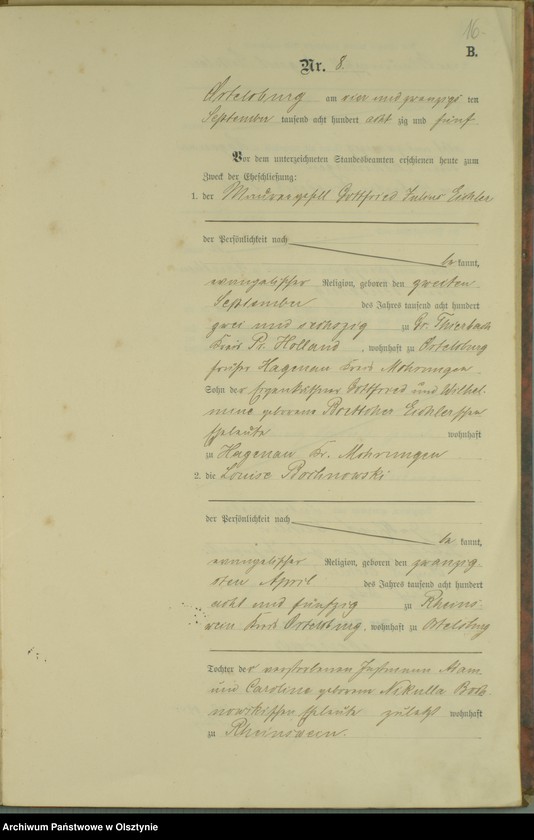 16.
B.
Nr. 8.
Ortelsburg am vier und zwanzigs ten
September tausend acht hundert acht zig und fünf
Vor dem unterzeichneten Standesbeamten erschienen heute zum
Zweck der Eheschließung:
1. der Maurergesell Gottfried Julius Eichler
der Persönlichkeit nach
be kannt,
evangelischer Religion, geboren den zweiten
September des Jahres tausend acht hundert
zwei und sechszig zu Gr. Thierbach
Kreis Pr. Holland, wohnhaft zu Ortelsburg
früher Hagenau Kreis Mohrungen
Sohn der Eigenkäthner Gottfried und Wilhel-
mine geborene Boettcher Eichlerschen
Eheleute wohnhaft
zu Hagenau Kr. Mohrungen
2. die Louise Bochnowski
der Persönlichkeit nach
be kannt,
evangelischer Religion, geboren den zwanzig-
sten April des Jahres tausend acht hundert
acht und fünfzig zu Rheins-
wein Kreis Ortelsburg, wohnhaft zu Ortelsburg
Tochter der verstorbenen Instmann Adam
und Caroline geborene Nikulla Boch-
nowskischen Eheleute zuletzt wohnhaft
zu Rheinswein.
Archiwum Państwowe w Olsztynie